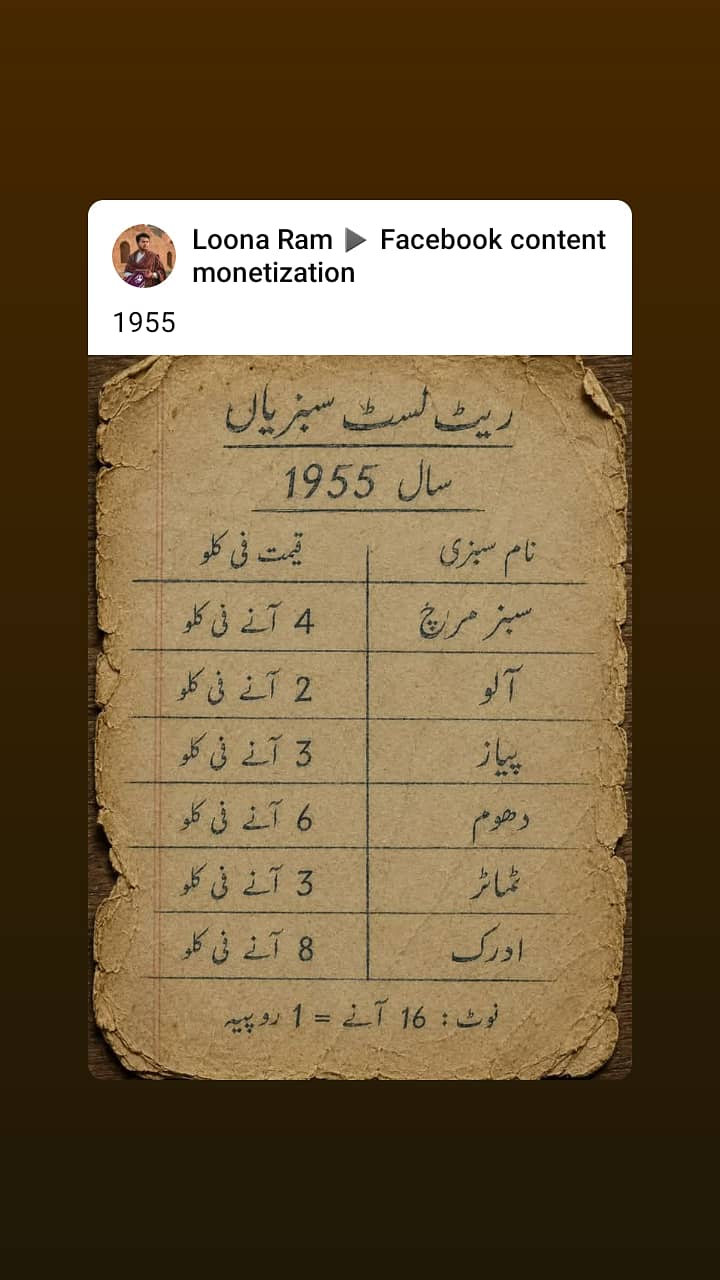 Loona Ram ▶ Facebook content
monetization
1955
ریٹ لسٹ سبزیاں
سال 1955
نام سبزی قیمت فی کلو
سبز مرچ 4 آنے فی کلو
آلو 2 آنے فی کلو
پیاز 3 آنے فی کلو
دھوم 6 آنے فی کلو
ٹماٹر 3 آنے فی کلو
ادرک 8 آنے فی کلو
نوٹ: 16 آنے = 1 روپیہ